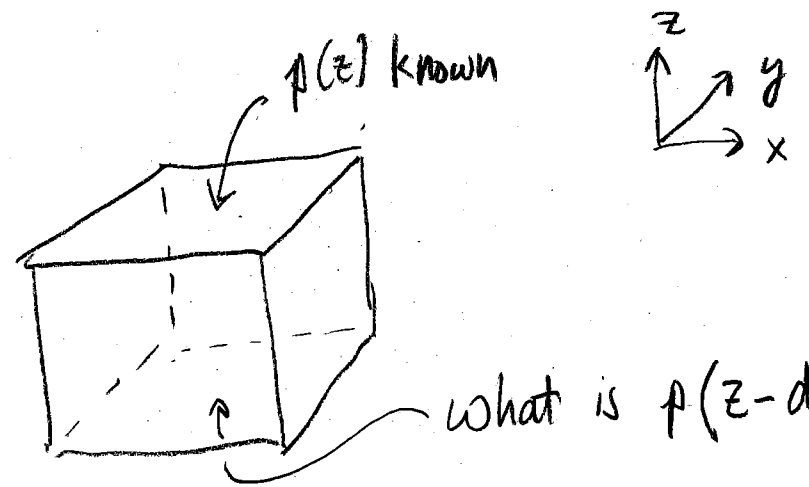 p(z) known
z
y
x
what is p(z-d